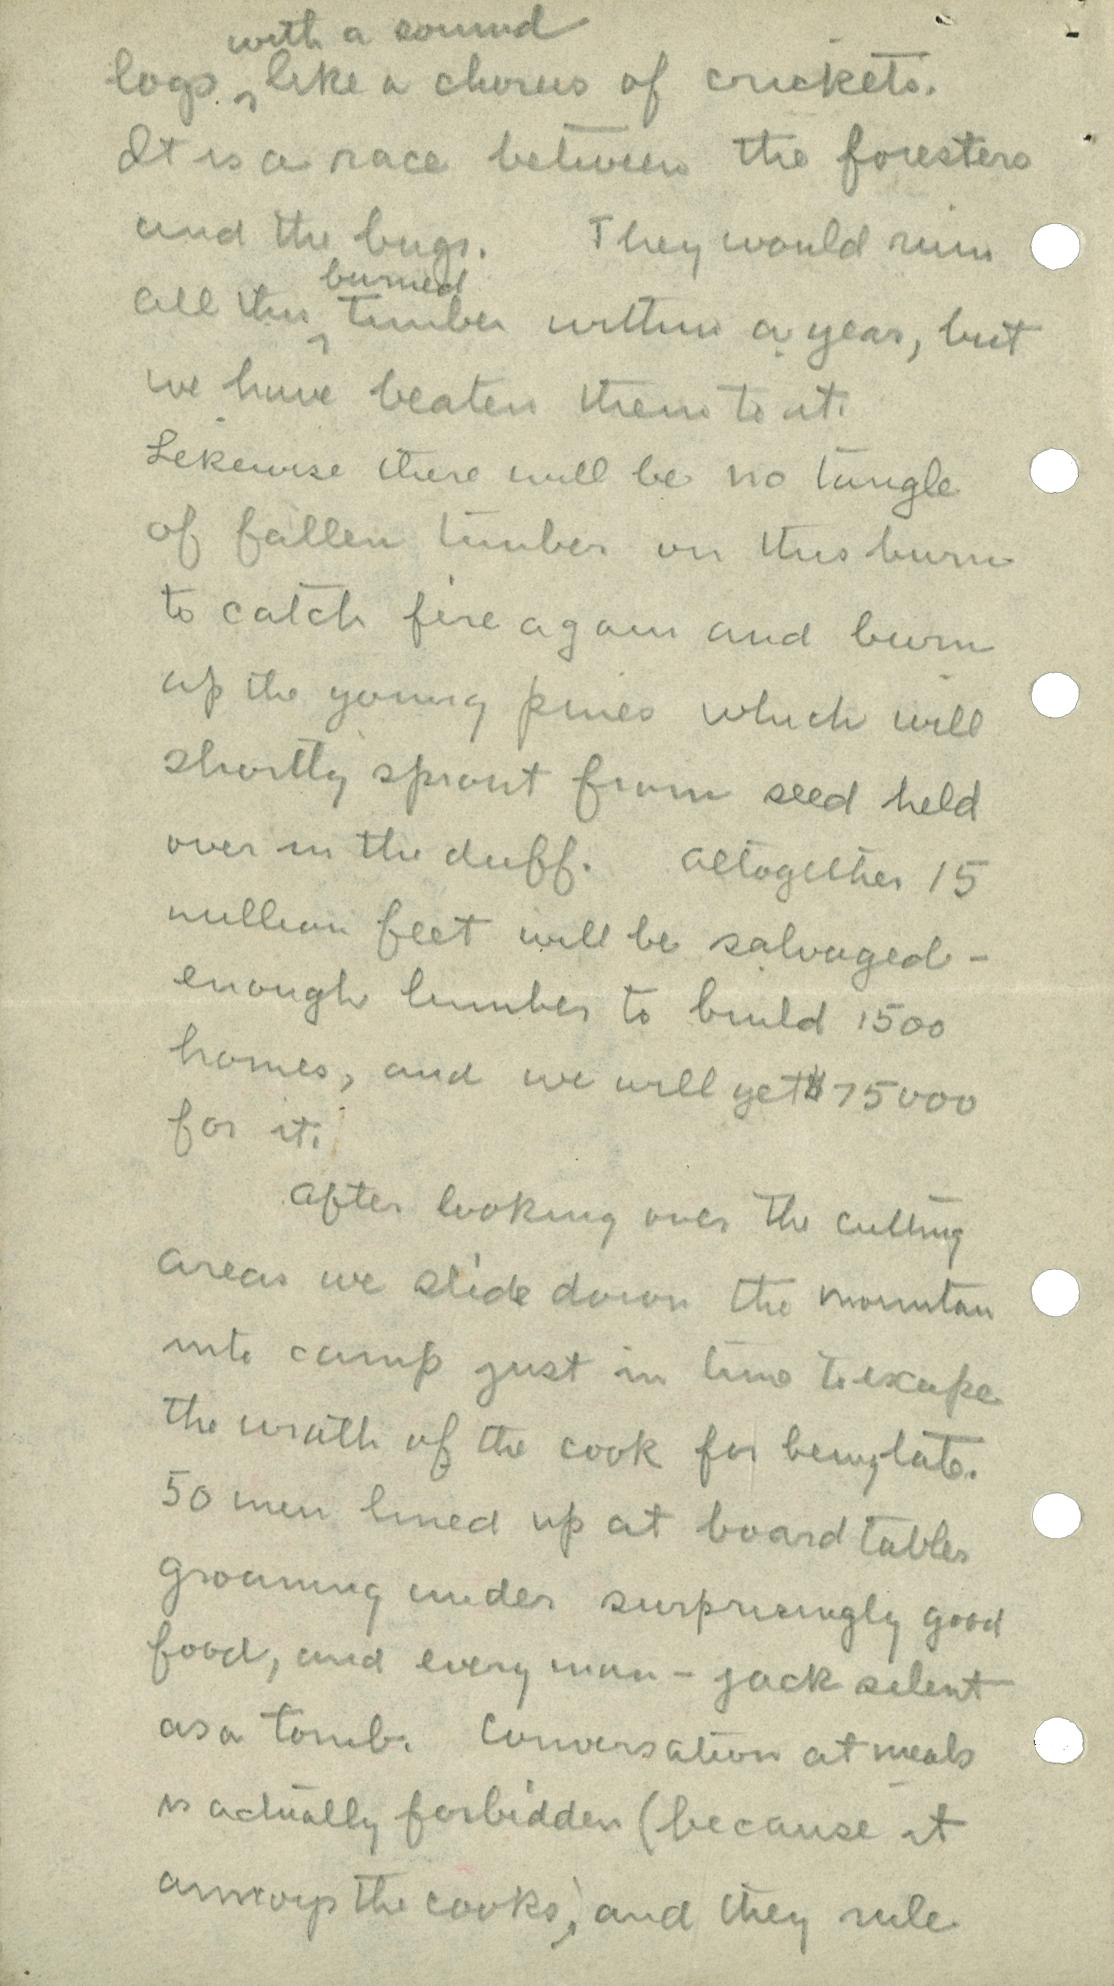 with a sound
logs, like a chorus of crickets.
It is a race between the foresters
and the bugs. They would ruin
burned
all this timber within a year, but
we have beaten them to it.
Likewise there will be no tangle
of fallen timber on this burn
to catch fire again and burn
up the young pines which will
shortly sprout from seed held
over in the duff. Altogether 15
million feet will be salvaged -
enough lumber to build 1500
homes, and we will get $75000
for it.
After looking over the cutting
areas we slide down the mountain
into camp just in time to escape
the wrath of the cook for being late.
50 men lined up at board tables
groaning under surprisingly good
food, and every man-jack silent
as a tomb. Conversation at meals
is actually forbidden (because it
annoys the cooks), and they rule